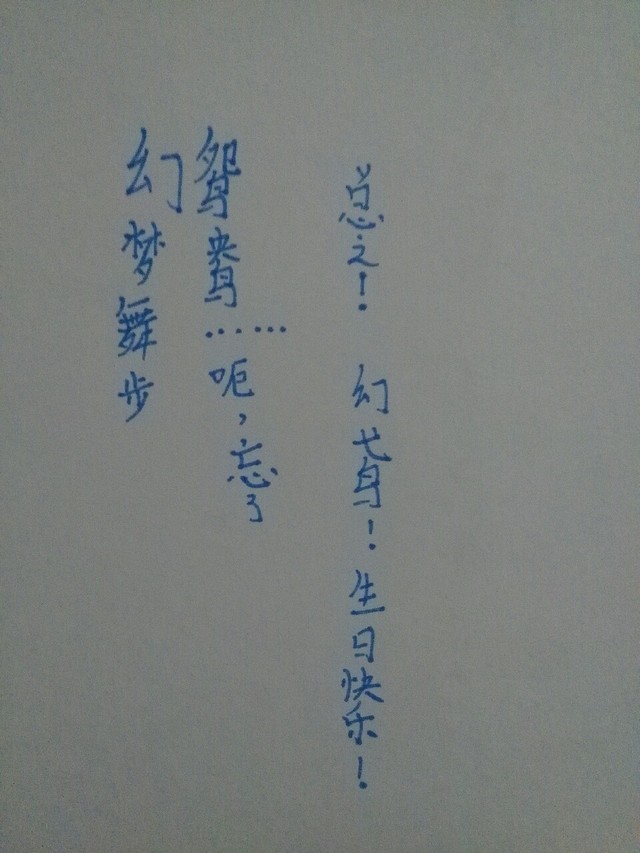 幻梦舞步
鸳鸯……呃，忘了
总之！ 幻鸢！生日快乐！